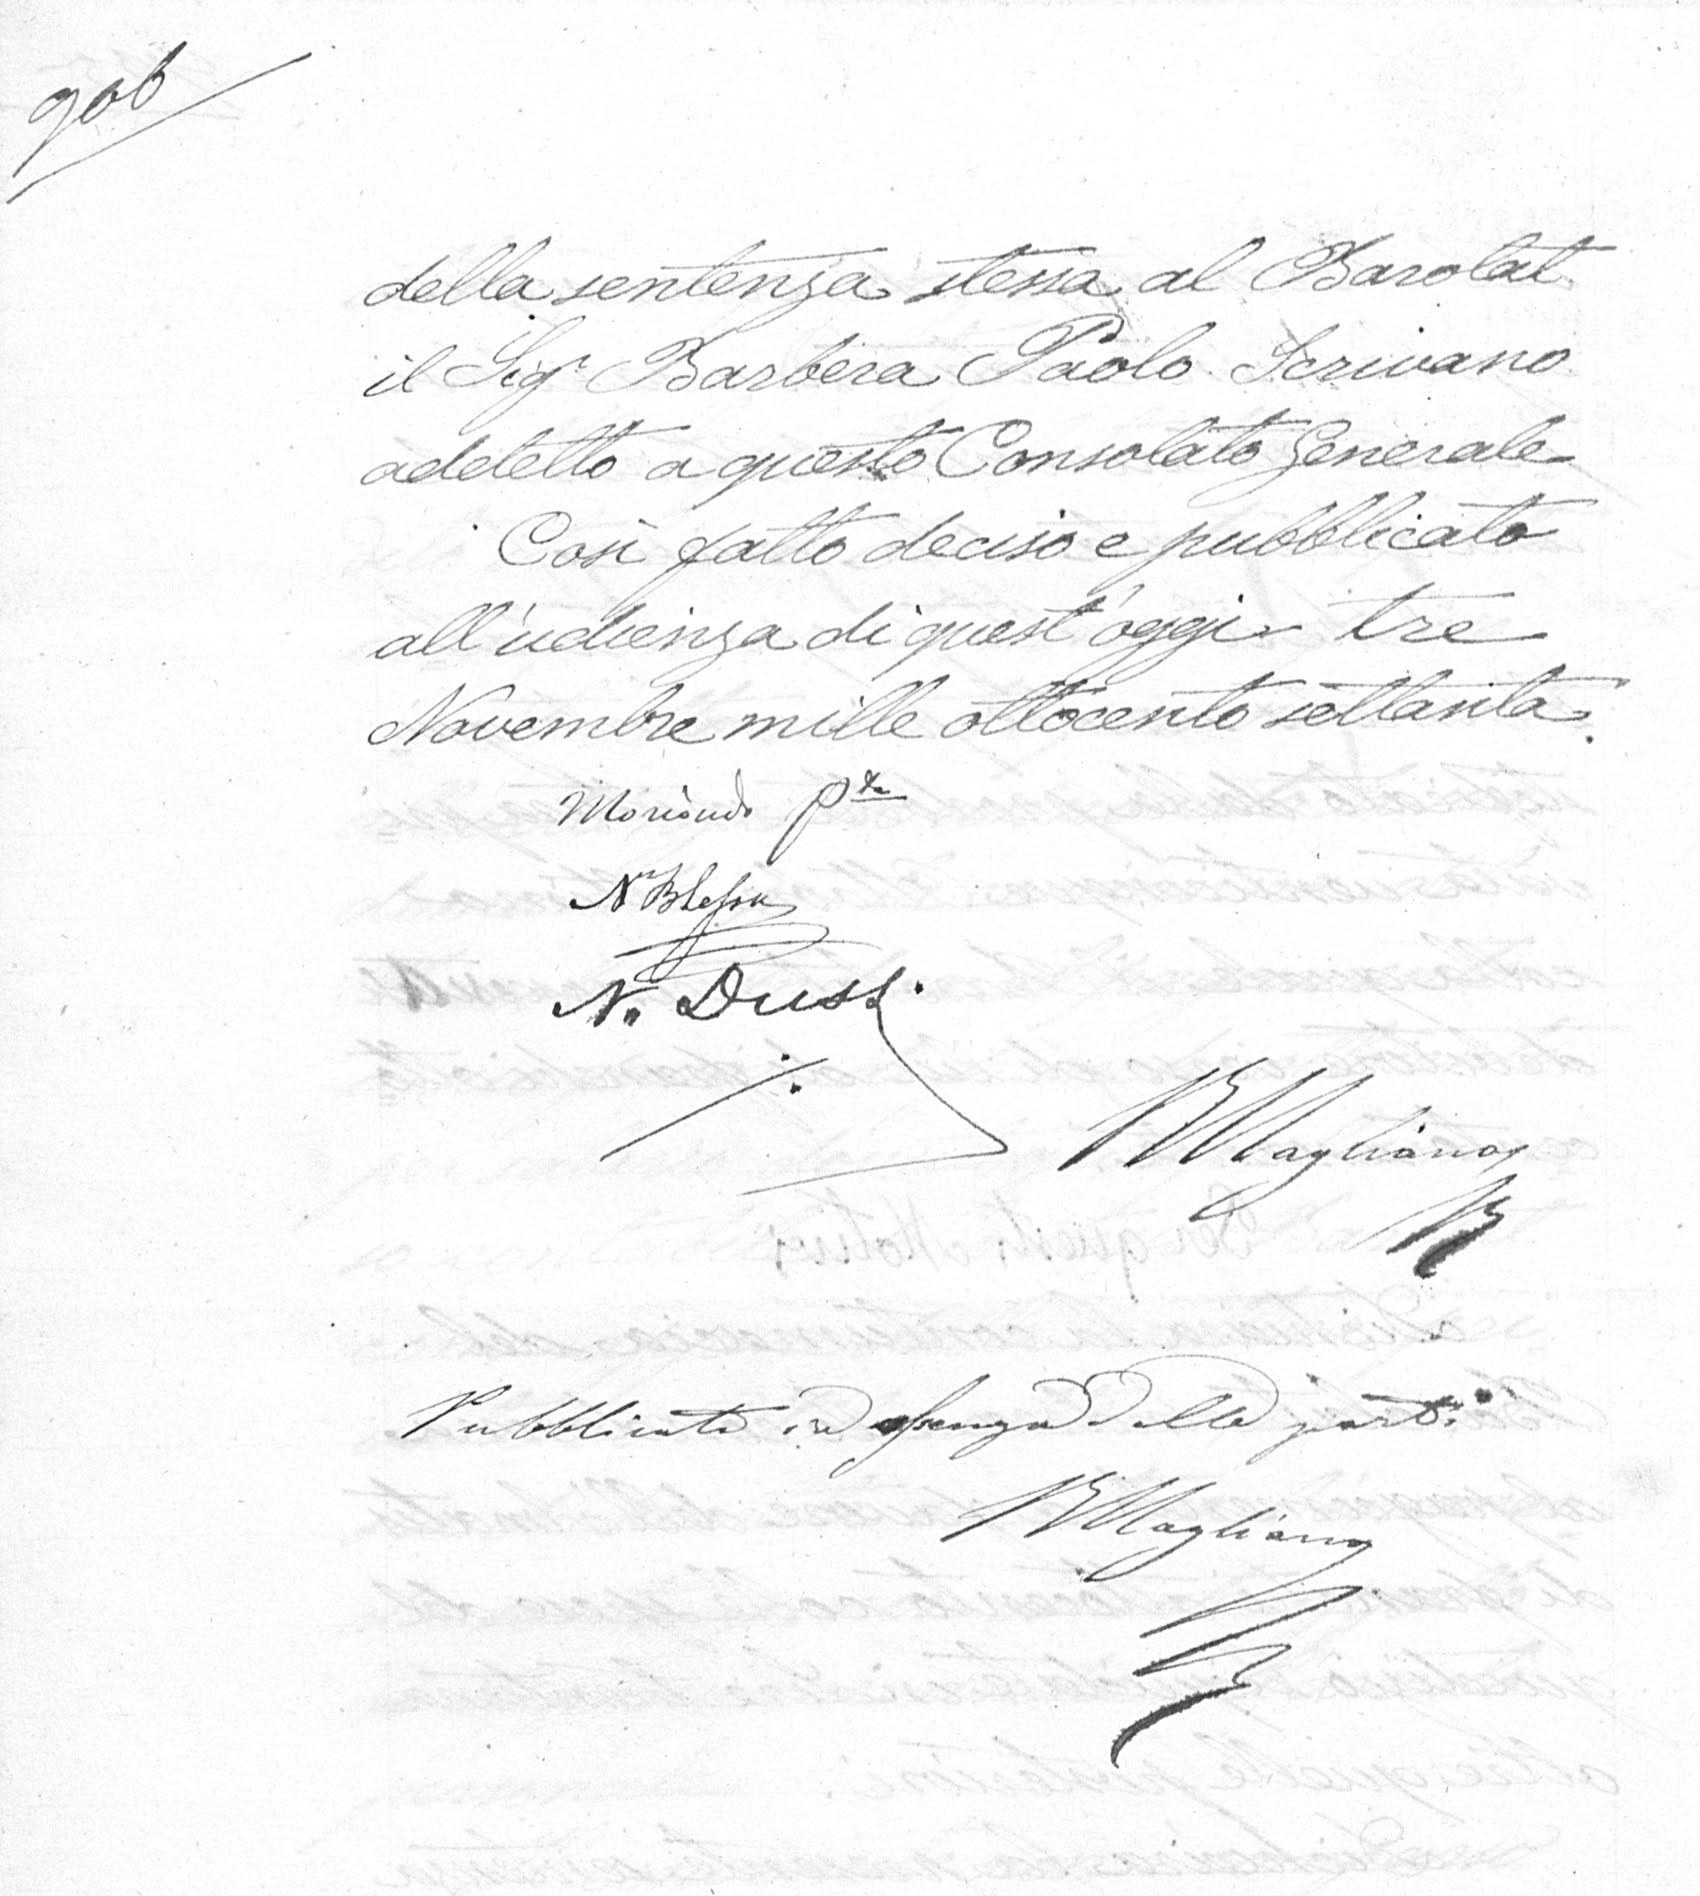 906
della sentenza stessa al Barolat
il Sigr Barbera Paolo Scrivano
addetto a questo Consolato Generale
Così fatto deciso e pubblicato
all'udienza di quest'oggi tre
Novembre mille ottocento settanta.
Moriondo Pte
N.
N. Duss.
B Magliano
Pubblicata in assenza delle parti
B Magliano